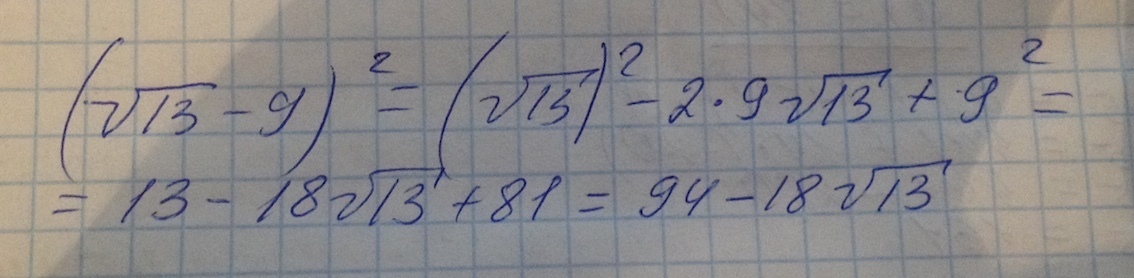 (√13 - 9)² = (√13)² - 2·9√13 + 9² =
= 13 - 18√13 + 81 = 94 - 18√13